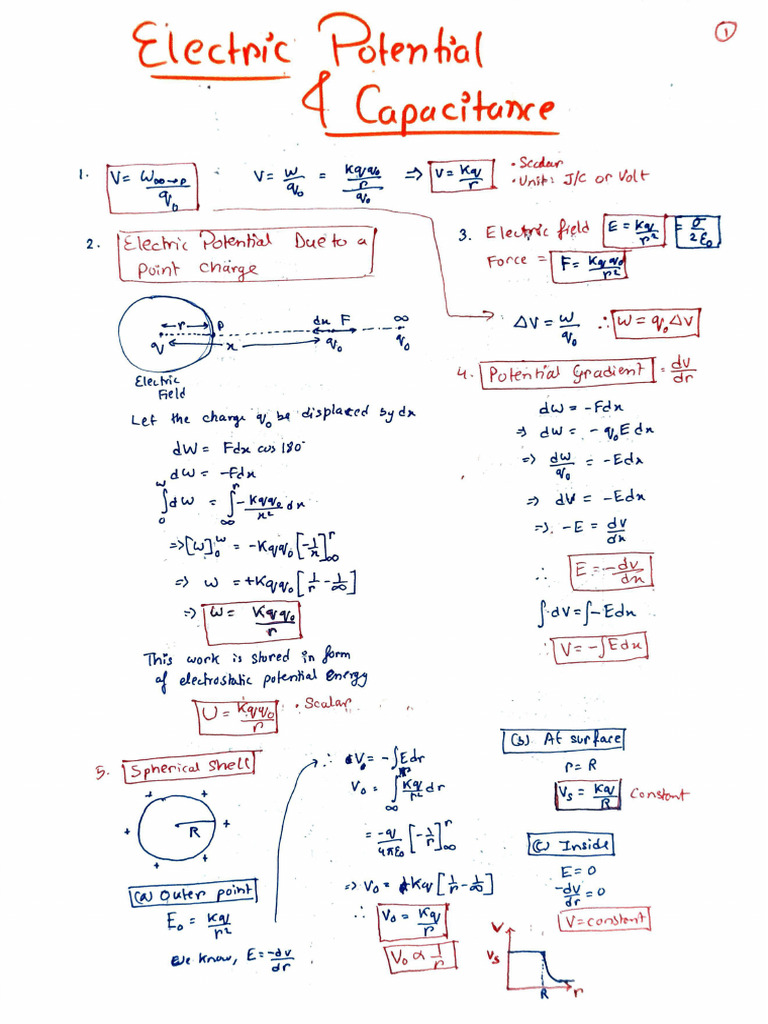 Electric Potential
& Capacitance
1
1. V = W∞→p / q₀   V = W/q₀ = (Kqq₀/r)/q₀ ⇒ V = Kq/r
• Scalar
• Unit: J/C or Volt
2. Electric Potential Due to a
Point charge
3. Electric field E = Kq/r² = σ/2ε₀
Force = F = Kqq₀/r²
ΔV = W/q₀ ∴ W = q₀ΔV
r P dx F ∞
q x q₀ q₀
Electric
Field
Let the charge q₀ be displaced by dx
dW = Fdx cos 180°
dW = -Fdx
∫₀^W dW = ∫∞^r -Kqq₀/x² dx
⇒ [W]₀^W = -Kqq₀ [-1/x]∞^r
⇒ W = +Kqq₀ [1/r - 1/∞]
⇒ W = Kqq₀/r
This work is stored in form
of electrostatic potential energy
U = Kqq₀/r • Scalar
4. Potential Gradient = dv/dr
dW = -Fdx
⇒ dW = -q₀Edx
⇒ dW/q₀ = -Edx
⇒ dV = -Edx
⇒ -E = dv/dx
∴ E = -dv/dx
∫dV = ∫-Edx
∴ V = -∫Edx
5. Spherical Shell
+ + + + + +
R
(a) Outer point
E₀ = Kq/r²
We know, E = -dv/dr
∴ V₀ = -∫Edr
V₀ = ∫∞^r Kq/r² dr
= -q/4πε₀ [-1/r]∞^r
⇒ V₀ = +Kq [1/r - 1/∞]
∴ V₀ = Kq/r
V₀ ∝ 1/r
(b) At surface
r = R
Vs = Kq/R Constant
(c) Inside
E = 0
-dv/dr = 0
V = constant
V
Vs
R r